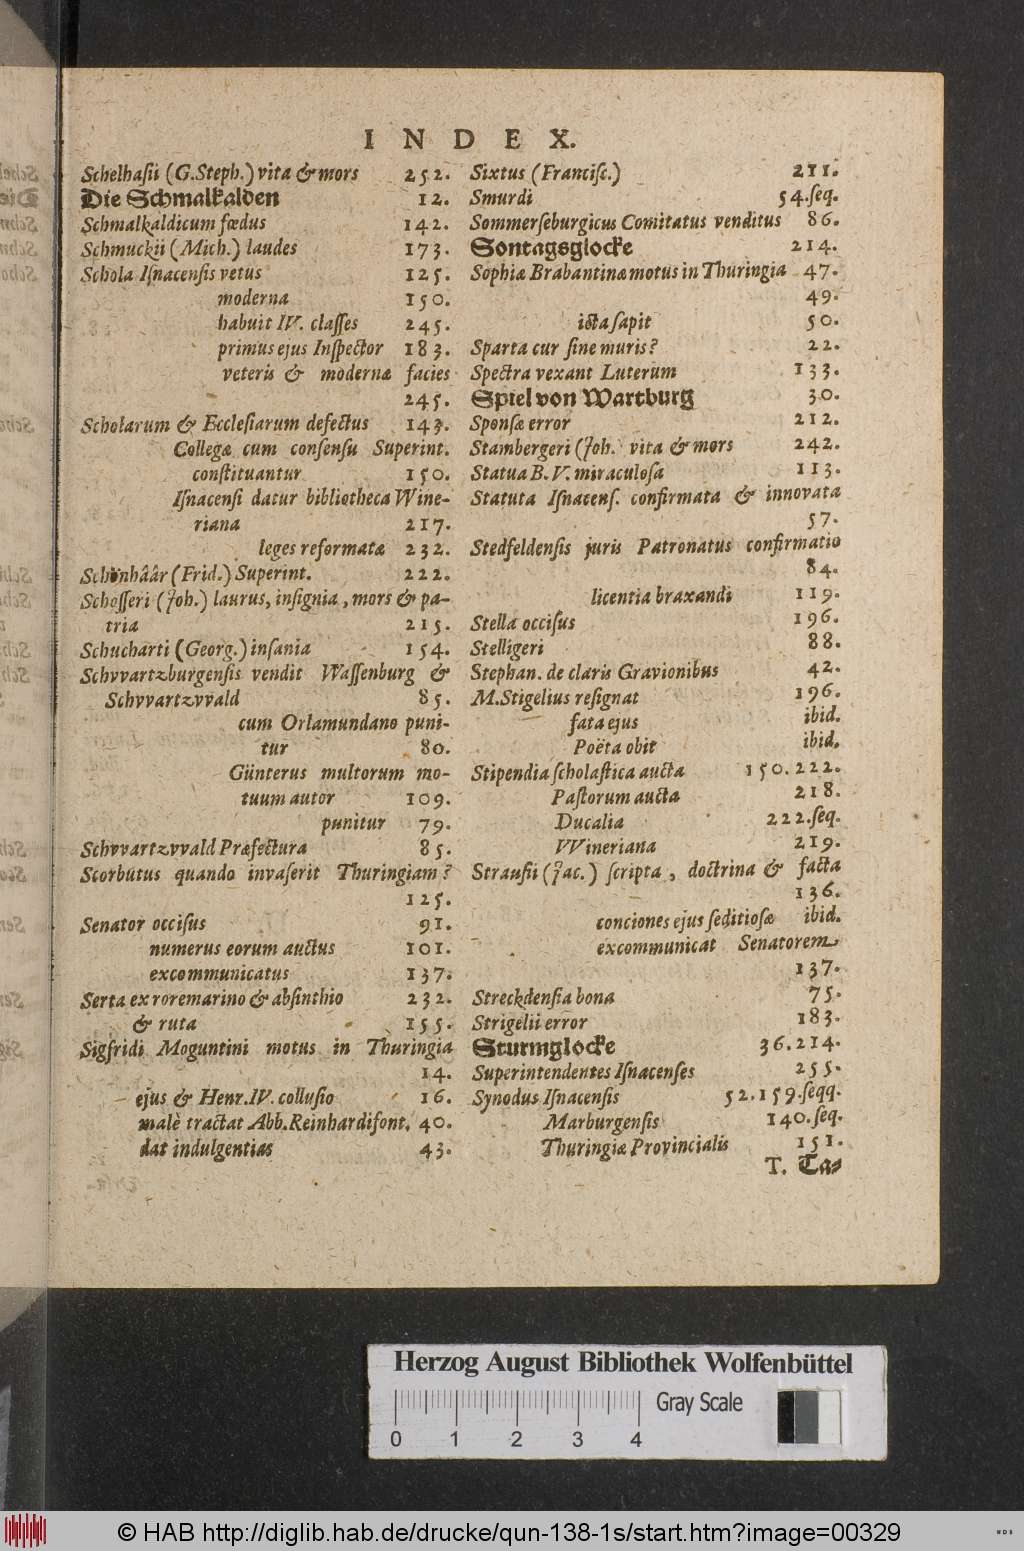 INDEX.
Schelhaſii (G.Steph.) vita & mors 252.
Die Schmalkalden 12.
Schmalkaldicum fœdus 142.
Schmuckii (Mich.) laudes 173.
Schola Iſnacenſis vetus 125.
moderna 150.
habuit IV. claſſes 245.
primus ejus Inſpector 183.
veteris & modernæ facies
245.
Scholarum & Eccleſiarum defectus 143.
Collegæ cum conſenſu Superint.
conſtituantur 150.
Iſnacenſi datur bibliotheca Wine-
riana 217.
leges reformatæ 232.
Schönhââr (Frid.) Superint. 222.
Schoſſeri (Joh.) laurus, inſignia, mors & pa-
tria 215.
Schucharti (Georg.) inſania 154.
Schvvartzburgenſis vendit Waſſenburg &
Schvvartzvvald 85.
cum Orlamundano puni-
tur 80.
Günterus multorum mo-
tuum autor 109.
punitur 79.
Schvvartzvvald Præfectura 85.
Scorbutus quando invaſerit Thuringiam?
125.
Senator occiſus 91.
numerus eorum auctus 101.
excommunicatus 137.
Serta ex roremarino & abſinthio 232.
& ruta 155.
Sigfridi Moguntini motus in Thuringia
14.
ejus & Henr.IV. colluſio 16.
malè tractat Abb.Reinhardisfont. 40.
dat indulgentias 43.
Sixtus (Franciſc.) 211.
Smurdi 54.ſeq.
Sommerſeburgicus Comitatus venditus 86.
Sontagsglocke 214.
Sophiæ Brabantinæ motus in Thuringia 47.
49.
icta ſapit 50.
Sparta cur ſine muris? 22.
Spectra vexant Luterum 133.
Spiel von Wartburg 30.
Sponſæ error 212.
Stambergeri (Joh. vita & mors 242.
Statua B.V. miraculoſa 113.
Statuta Iſnacenſ. confirmata & innovata
57.
Stedfeldenſis juris Patronatus confirmatio
84.
licentia braxandi 119.
Stella occiſus 196.
Stelligeri 88.
Stephan. de claris Gravionibus 42.
M.Stigelius reſignat 196.
fata ejus ibid.
Poëta obit ibid.
Stipendia ſcholaſtica aucta 150.222.
Paſtorum aucta 218.
Ducalia 222.ſeq.
VVineriana 219.
Strauſii (Jac.) ſcripta, doctrina & facta
136.
conciones ejus ſeditioſæ ibid.
excommunicat Senatorem
137.
Streckdenſia bona 75.
Strigelii error 183.
Sturmglocke 36.214.
Superintendentes Iſnacenſes 255.
Synodus Iſnacenſis 52.159.ſeqq.
Marburgenſis 140.ſeq.
Thuringiæ Provincialis 151.
T. Ta-
Herzog August Bibliothek Wolfenbüttel
Gray Scale
0 1 2 3 4
© HAB http://diglib.hab.de/drucke/qun-138-1s/start.htm?image=00329